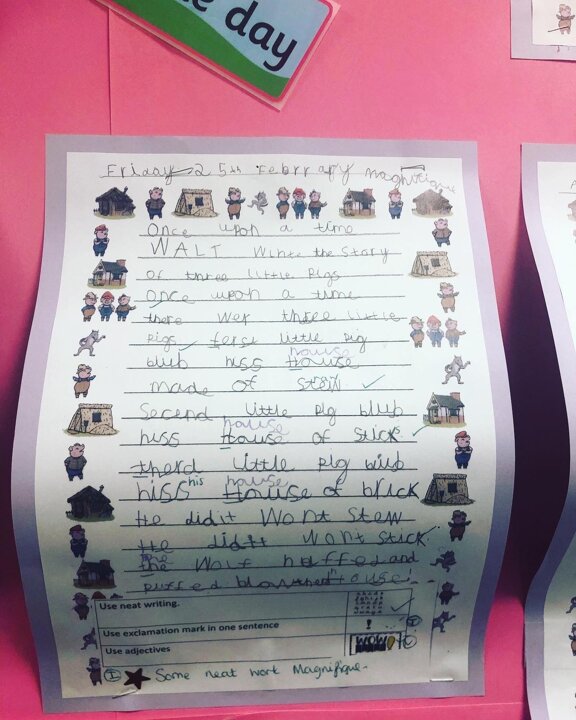 e day
Friday 25th Febrrapy Maghifique
Once upon a time
WALT Winte the Story
of three little Pigs
Once upon a time
there wer three little
Pigs ferst little Pig
house
blub hiss House
made of
Second little Pig blub
house
hiss House of Sticks
therd little Pig blub
his house
hiss House of brick
He didit Wont Stew
He didit Wont Stick
the
the Wolf haffed and
puffed blowthen House!
Use neat writing.
Use exclamation mark in one sentence
!
Use adjectives
WOW
I Some neat work Magnifique.